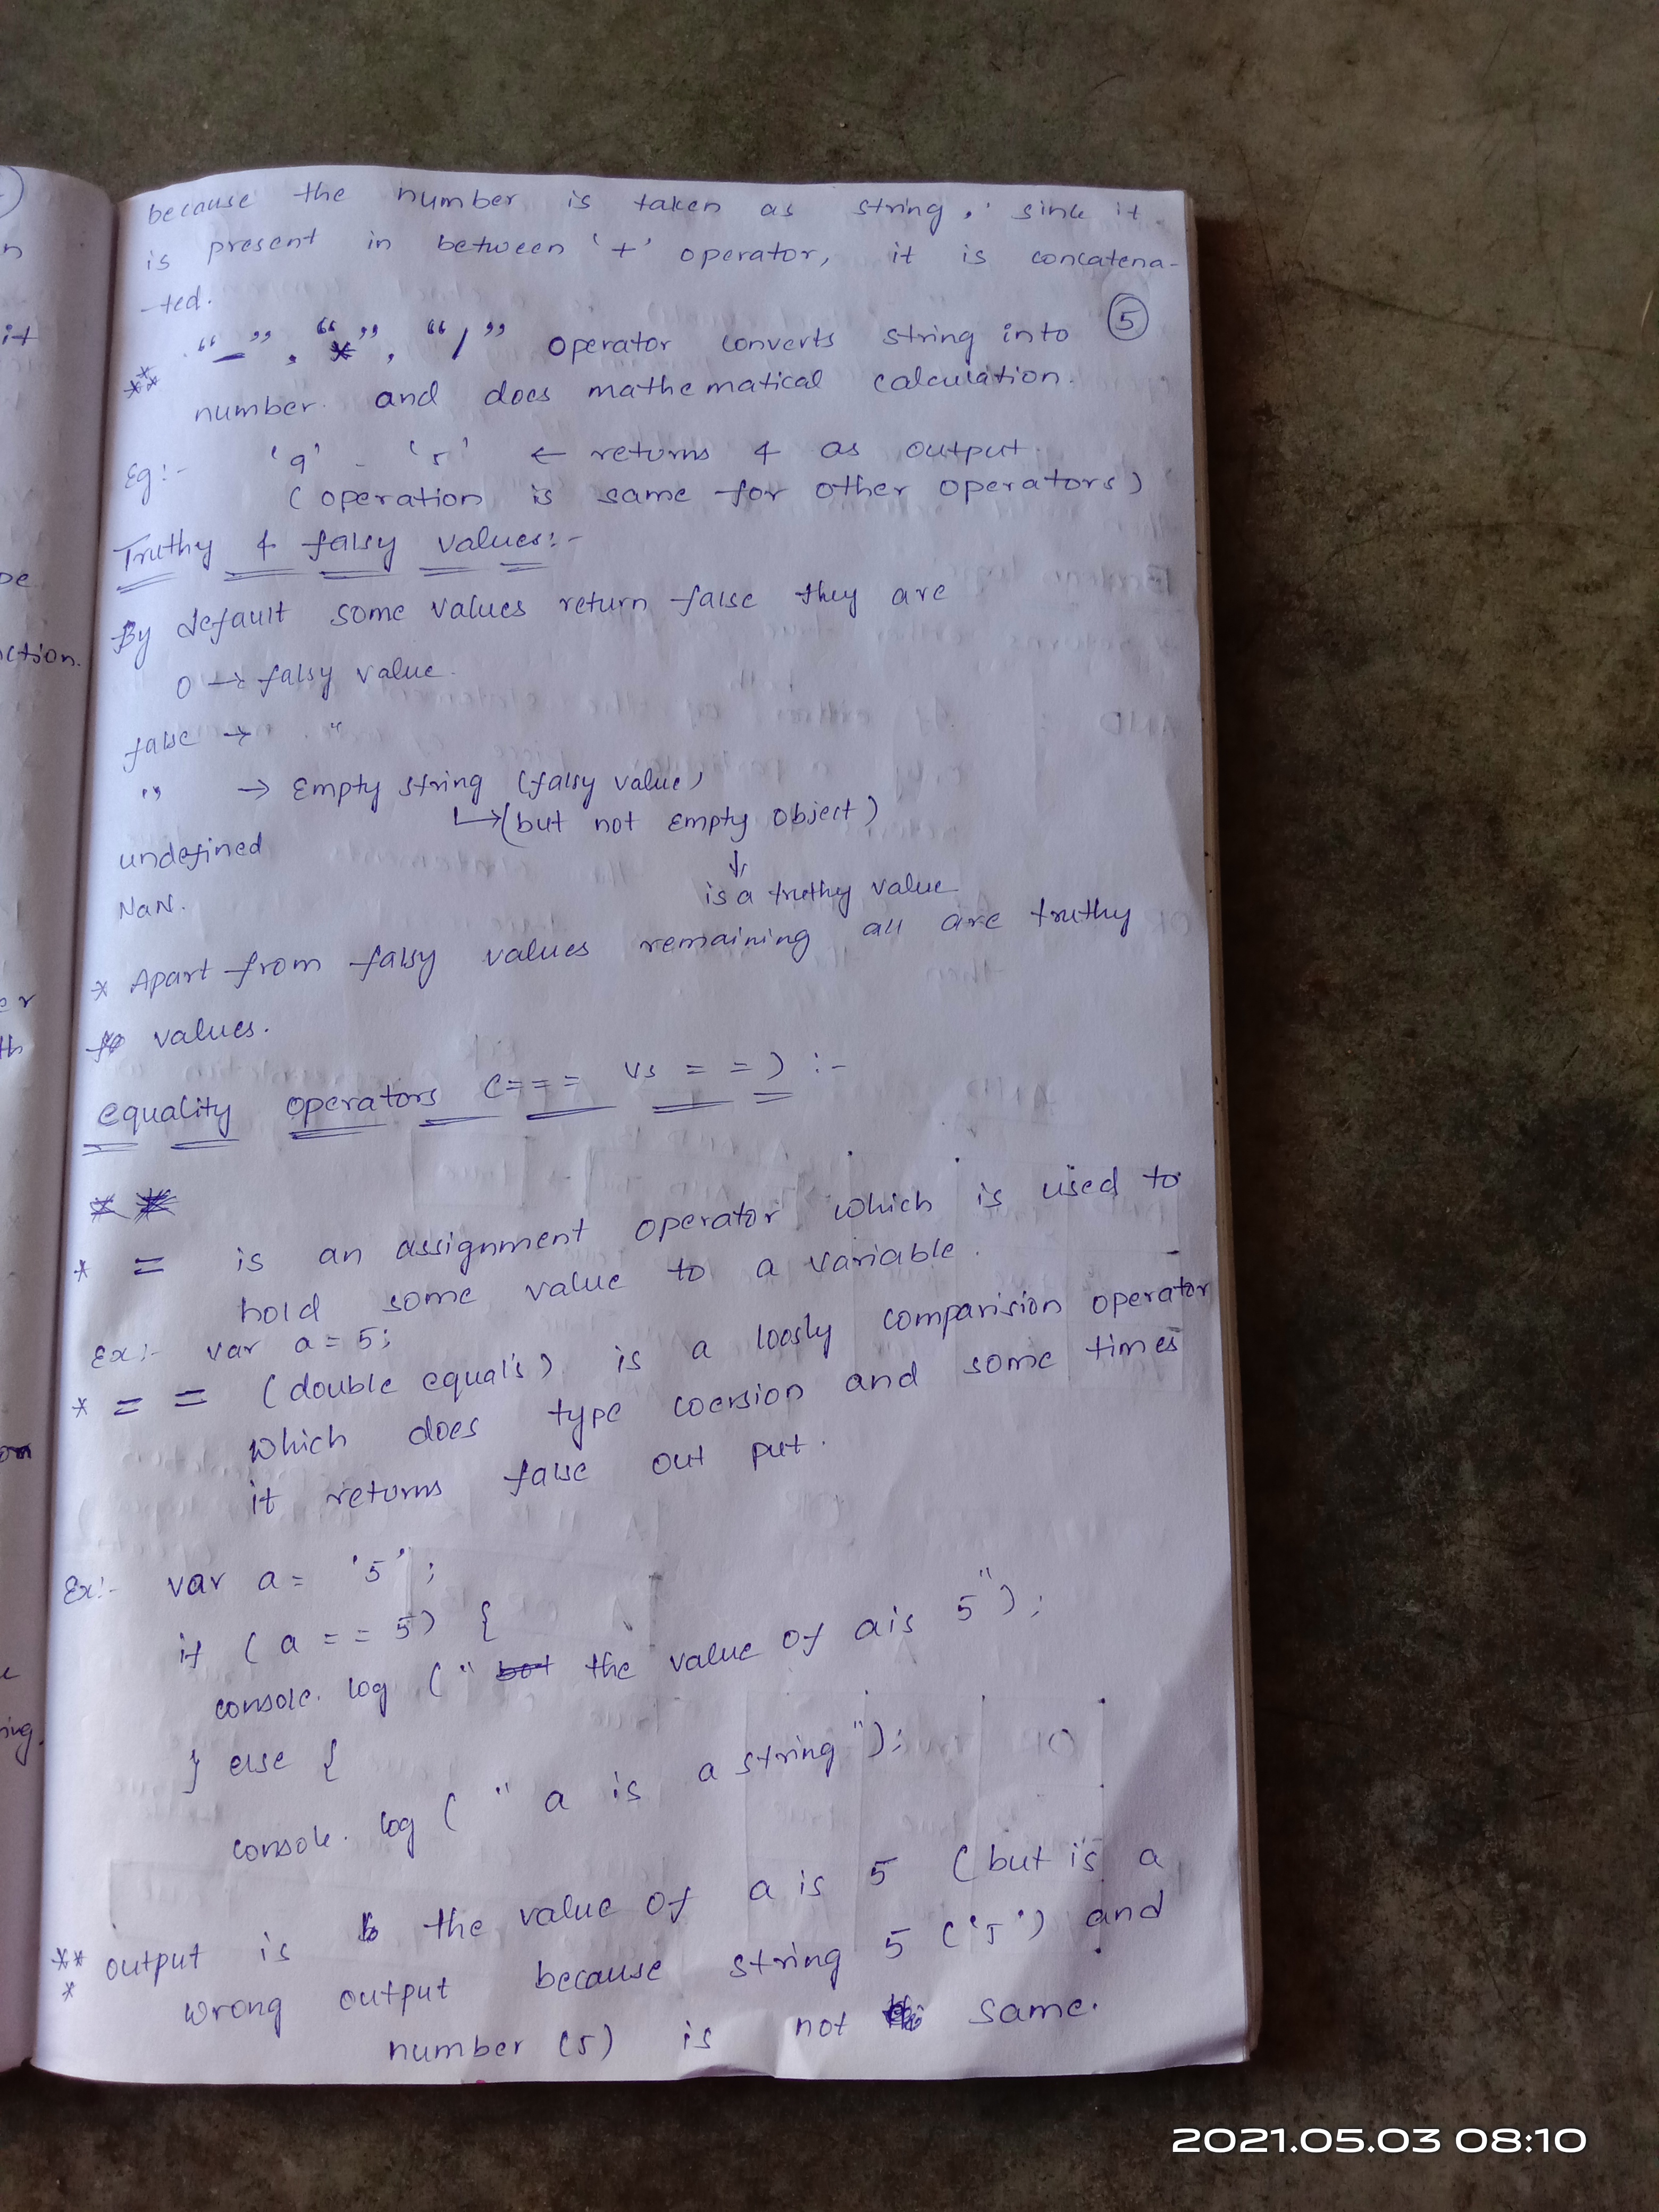 because the number is taken as string, since it
is present in between '+' operator, it is concatena-
-ted.
5
** "-", "*", "/" operator converts string into
number. and does mathematical calculation.
Eg:- '9' - '5' ← returns 4 as output.
(operation is same for other operators)
Truthy & falsy values:-
By default some values return false they are
0 → falsy value.
false → "
'' → Empty string (falsy value)
↳ (but not empty object)
undefined
↓
is a truthy value
NaN.
* Apart from falsy values remaining all are truthy
values.
equality operators (=== vs ==) :-
* = is an assignment operator which is used to
hold some value to a variable.
Ex:- var a = 5;
* == (double equal's) is a loosly comparision operator
which does type coersion and some times
it returns false out put.
Ex:- var a = '5';
if (a == 5) {
console.log ("the value of a is 5");
} else {
console.log ("a is a string");
*** output is the value of a is 5 (but is a
wrong output because string 5 ('5') and
number (5) is not same.
it
n
pe
iction.
er
th
on
ing.
2021.05.03 08:10